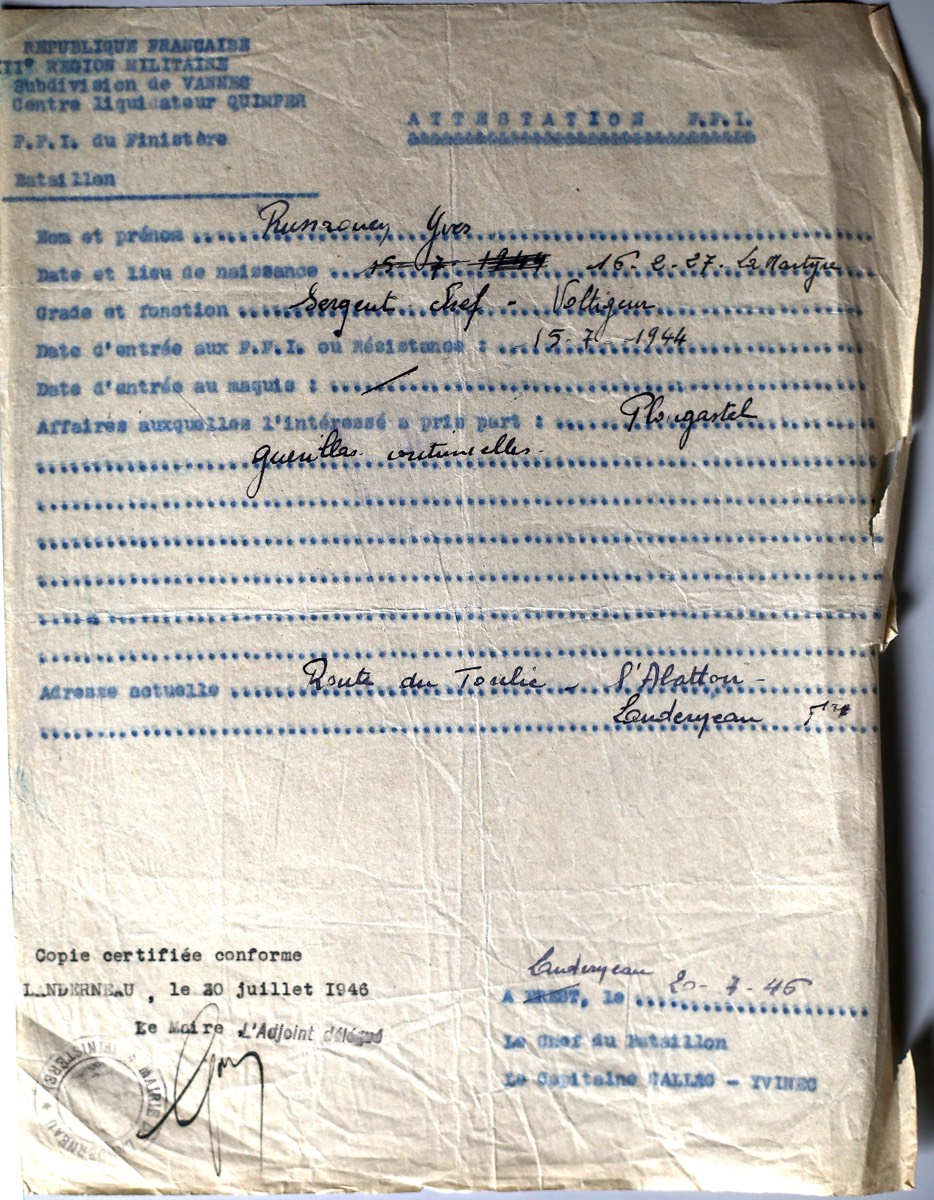 REPUBLIQUE FRANCAISE
II° REGION MILITAIRE
Subdivision de VANNES
Centre liquidateur QUIMPER
ATTESTATION F.F.I.
F.F.I. du Finistère
Bataillon
Nom et prénom Yves
Date et lieu de naissance 15-7-1944 16-2-27. La Martyre
Grade et fonction Sergent Chef - Voltigeur
Date d'entrée aux F.F.I. ou Résistance : 15-7-1944
Date d'entrée au maquis :
Affaires auxquelles l'intéressé a pris part : Plougastel
guerillas continuelles.
Adresse actuelle Route du Toulic -
Landerneau Fre
Copie certifiée conforme
LANDERNEAU, le 20 juillet 1946
Le Maire L'Adjoint délégué
MAIRIE DE LANDERNEAU * FINISTERE *
Landerneau
A BREST, le 20-7-46
Le Chef du Bataillon
Le Capitaine GALLEC - YVINEC